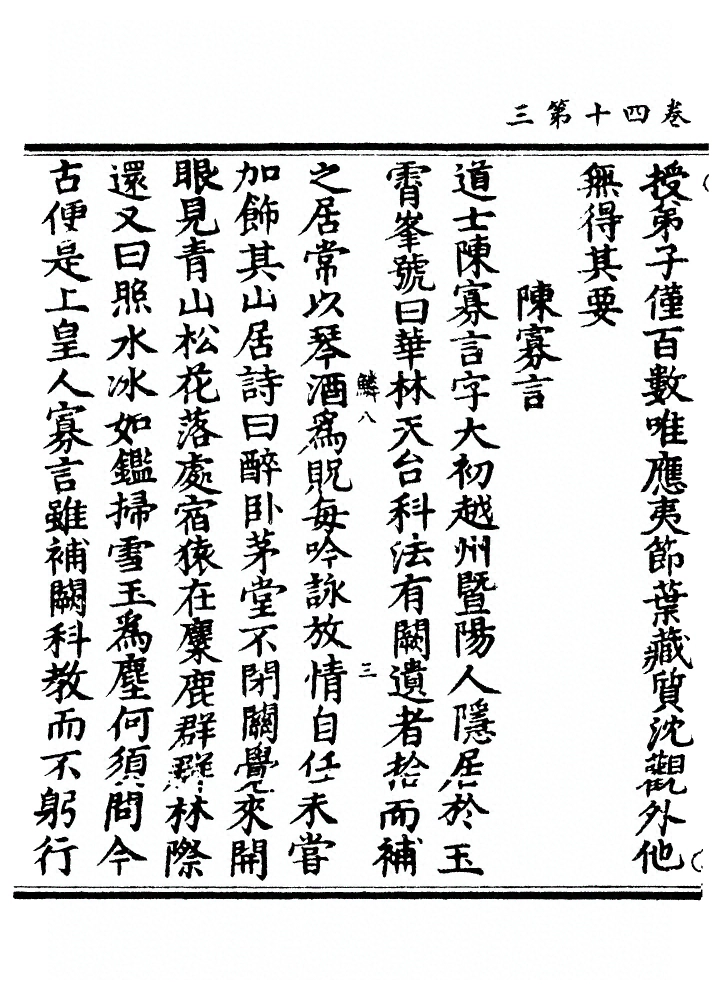 卷四十第三
授弟子僅百數唯應夷節葉藏質沈觀外他
無得其要
陳寡言
道士陳寡言字大初越州暨陽人隱居於玉
霄峯號曰華林天台科法有闕遺者拾而補
鱗八 三
之居常以琴酒爲貺每吟詠放情自任未嘗
加飾其山居詩曰醉卧茅堂不閉關覺來開
眼見青山松花落處宿猿在麋鹿群群林際
還又曰照水冰如鑑掃雪玉爲塵何須問今
古便是上皇人寡言雖補闕科教而不躬行